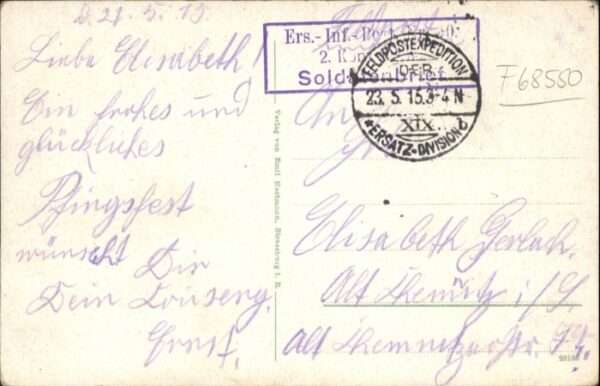 D. 21. 5. 15.
Liebe Elisabeth!
Ein frohes und
glückliches
Pfingsfest
wünscht Dir
Dein
Ernst.
Verlag von Emil Hartmann, Strassburg i. E.
Feldpost
Ers.-Inf.-
2.
Soldatenbrief
FELDPOSTEXPEDITION
DER
23. 5. 15. 3-4 N
XIX.
*ERSATZ-DIVISION c
F68580
An
Elisabeth Gerlach.
Alt Chemnitz i/S.
Alt Chemnitzerstr.